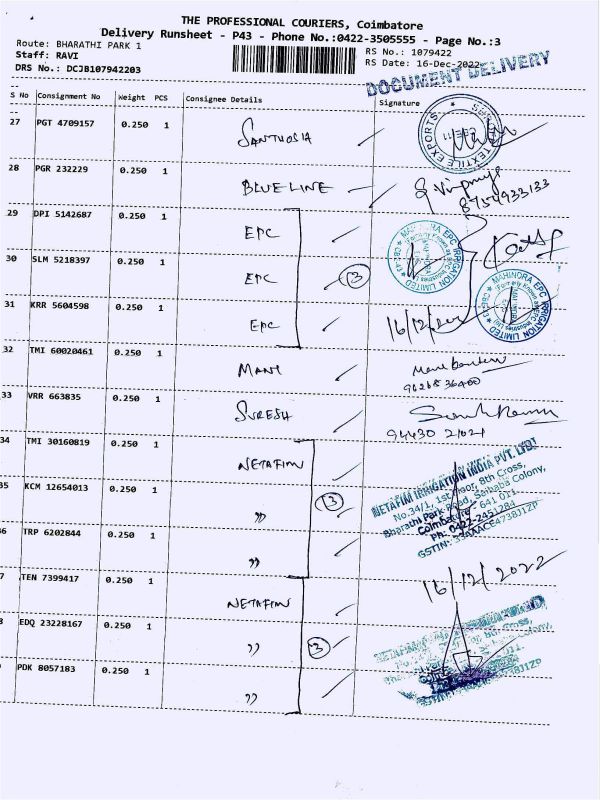 THE PROFESSIONAL COURIERS, Coimbatore
Delivery Runsheet - P43 - Phone No.:0422-3505555 - Page No.:3
Route: BHARATHI PARK 1
RS No.: 1079422
Staff: RAVI
RS Date: 16-Dec-2022
DRS No.: DCJB107942203
DOCUMENT DELIVERY
S No Consignment No Weight PCS Consignee Details Signature
27 PGT 4709157 0.250 1 SANTHOSIA
TEXTILE EXPORTS
28 PGR 232229 0.250 1 BLUELINE
8754933133
29 DPI 5142687 0.250 1 EPC
MAHINDRA EPC IRRIGATION LIMITED
30 SLM 5218397 0.250 1 EPC 3
MAHINDRA EPC IRRIGATION LIMITED
31 KRR 5604598 0.250 1 EPC 16/12/2022
32 TMI 60020461 0.250 1 MANI
96268 36400
33 VRR 663835 0.250 1 SURESH
94430 21021
34 TMI 30160819 0.250 1 NETAFIM
NETAFIM IRRIGATION INDIA PVT. LTD.
No.34/1, 1st Floor, 8th Cross,
35 KCM 12654013 0.250 1 " 3
Bharathi Park Road, Saibaba Colony,
Coimbatore - 641 011
Ph: 0422-2451284
36 TRP 6202844 0.250 1 "
16/12/2022
37 TEN 7399417 0.250 1 NETAFIM
38 EDQ 23228167 0.250 1 " 3
39 PDK 8057183 0.250 1 "